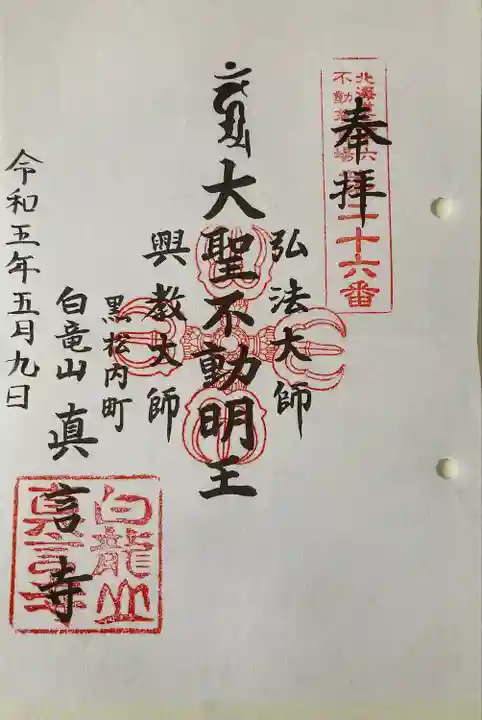 奉拝
二十六番
弘法大師
大聖不動明王
興教大師
黒松内町
白竜山 真言寺
令和五年五月九日
白龍山
真言寺